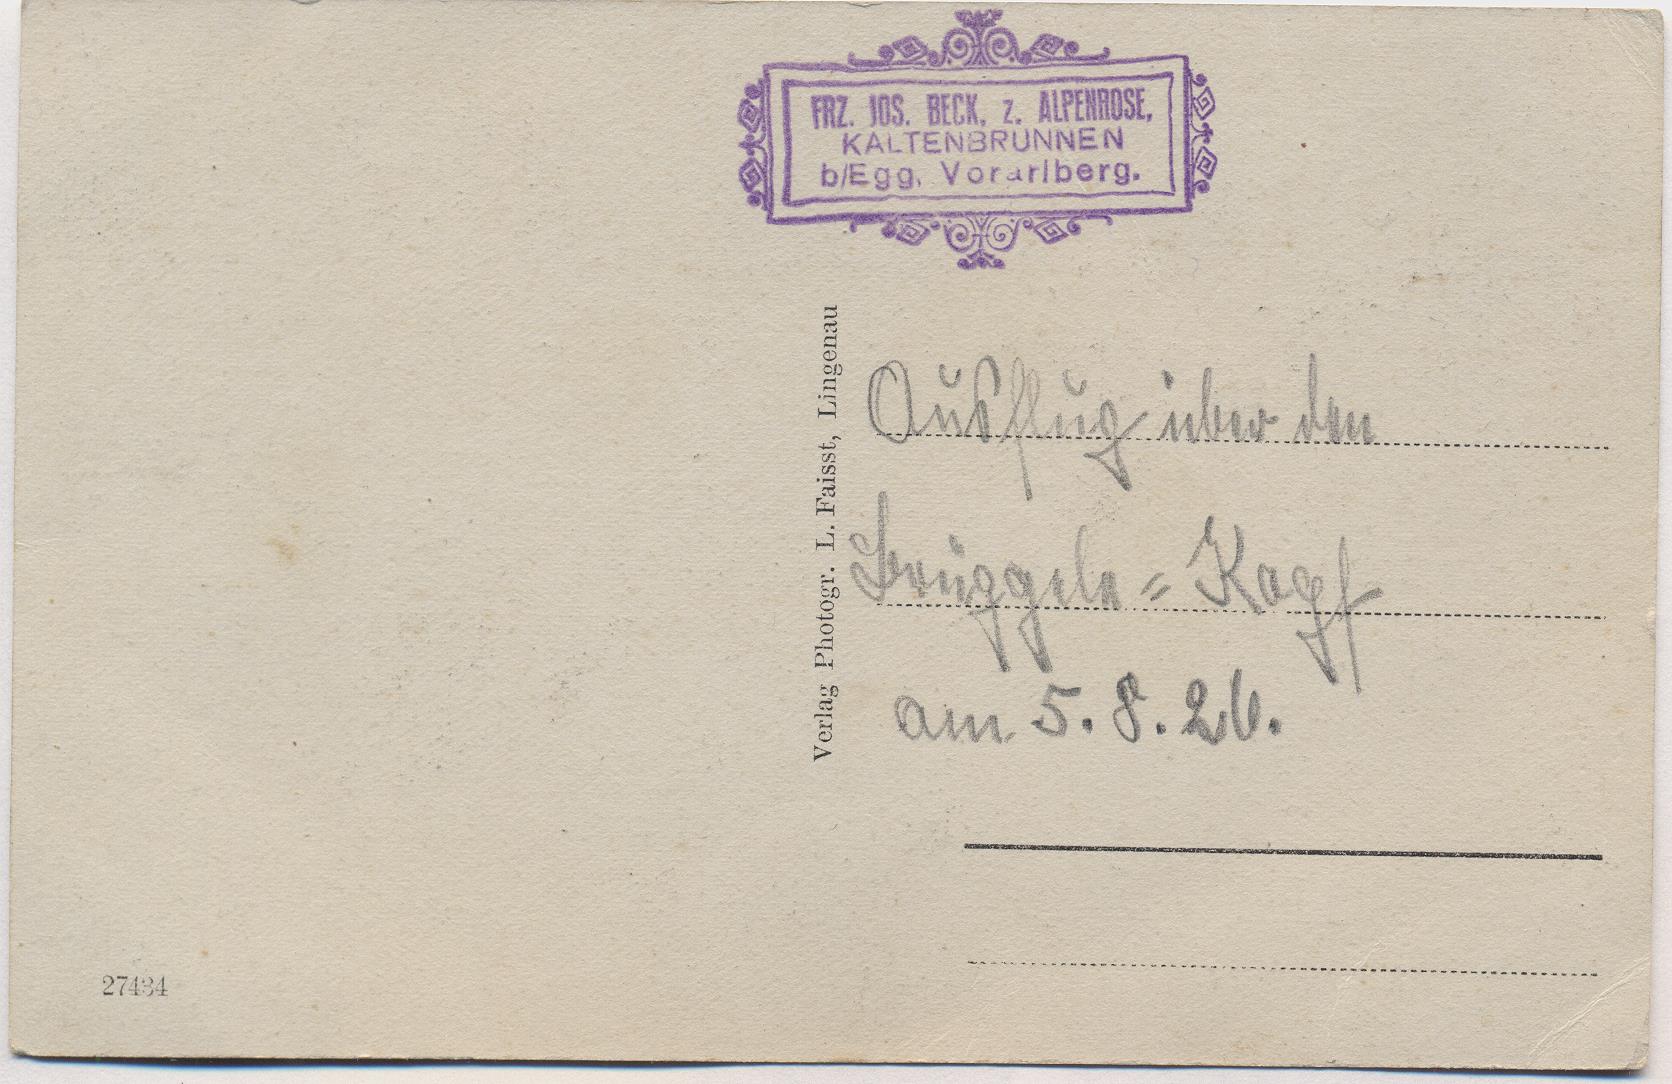 FRZ. JOS. BECK, z. ALPENROSE,
KALTENBRUNNEN
b/Egg, Vorarlberg.
Verlag Photogr. L. Faisst, Lingenau
Ausflug über den
Brüggele=Kopf
am 5. 8. 26.
27434